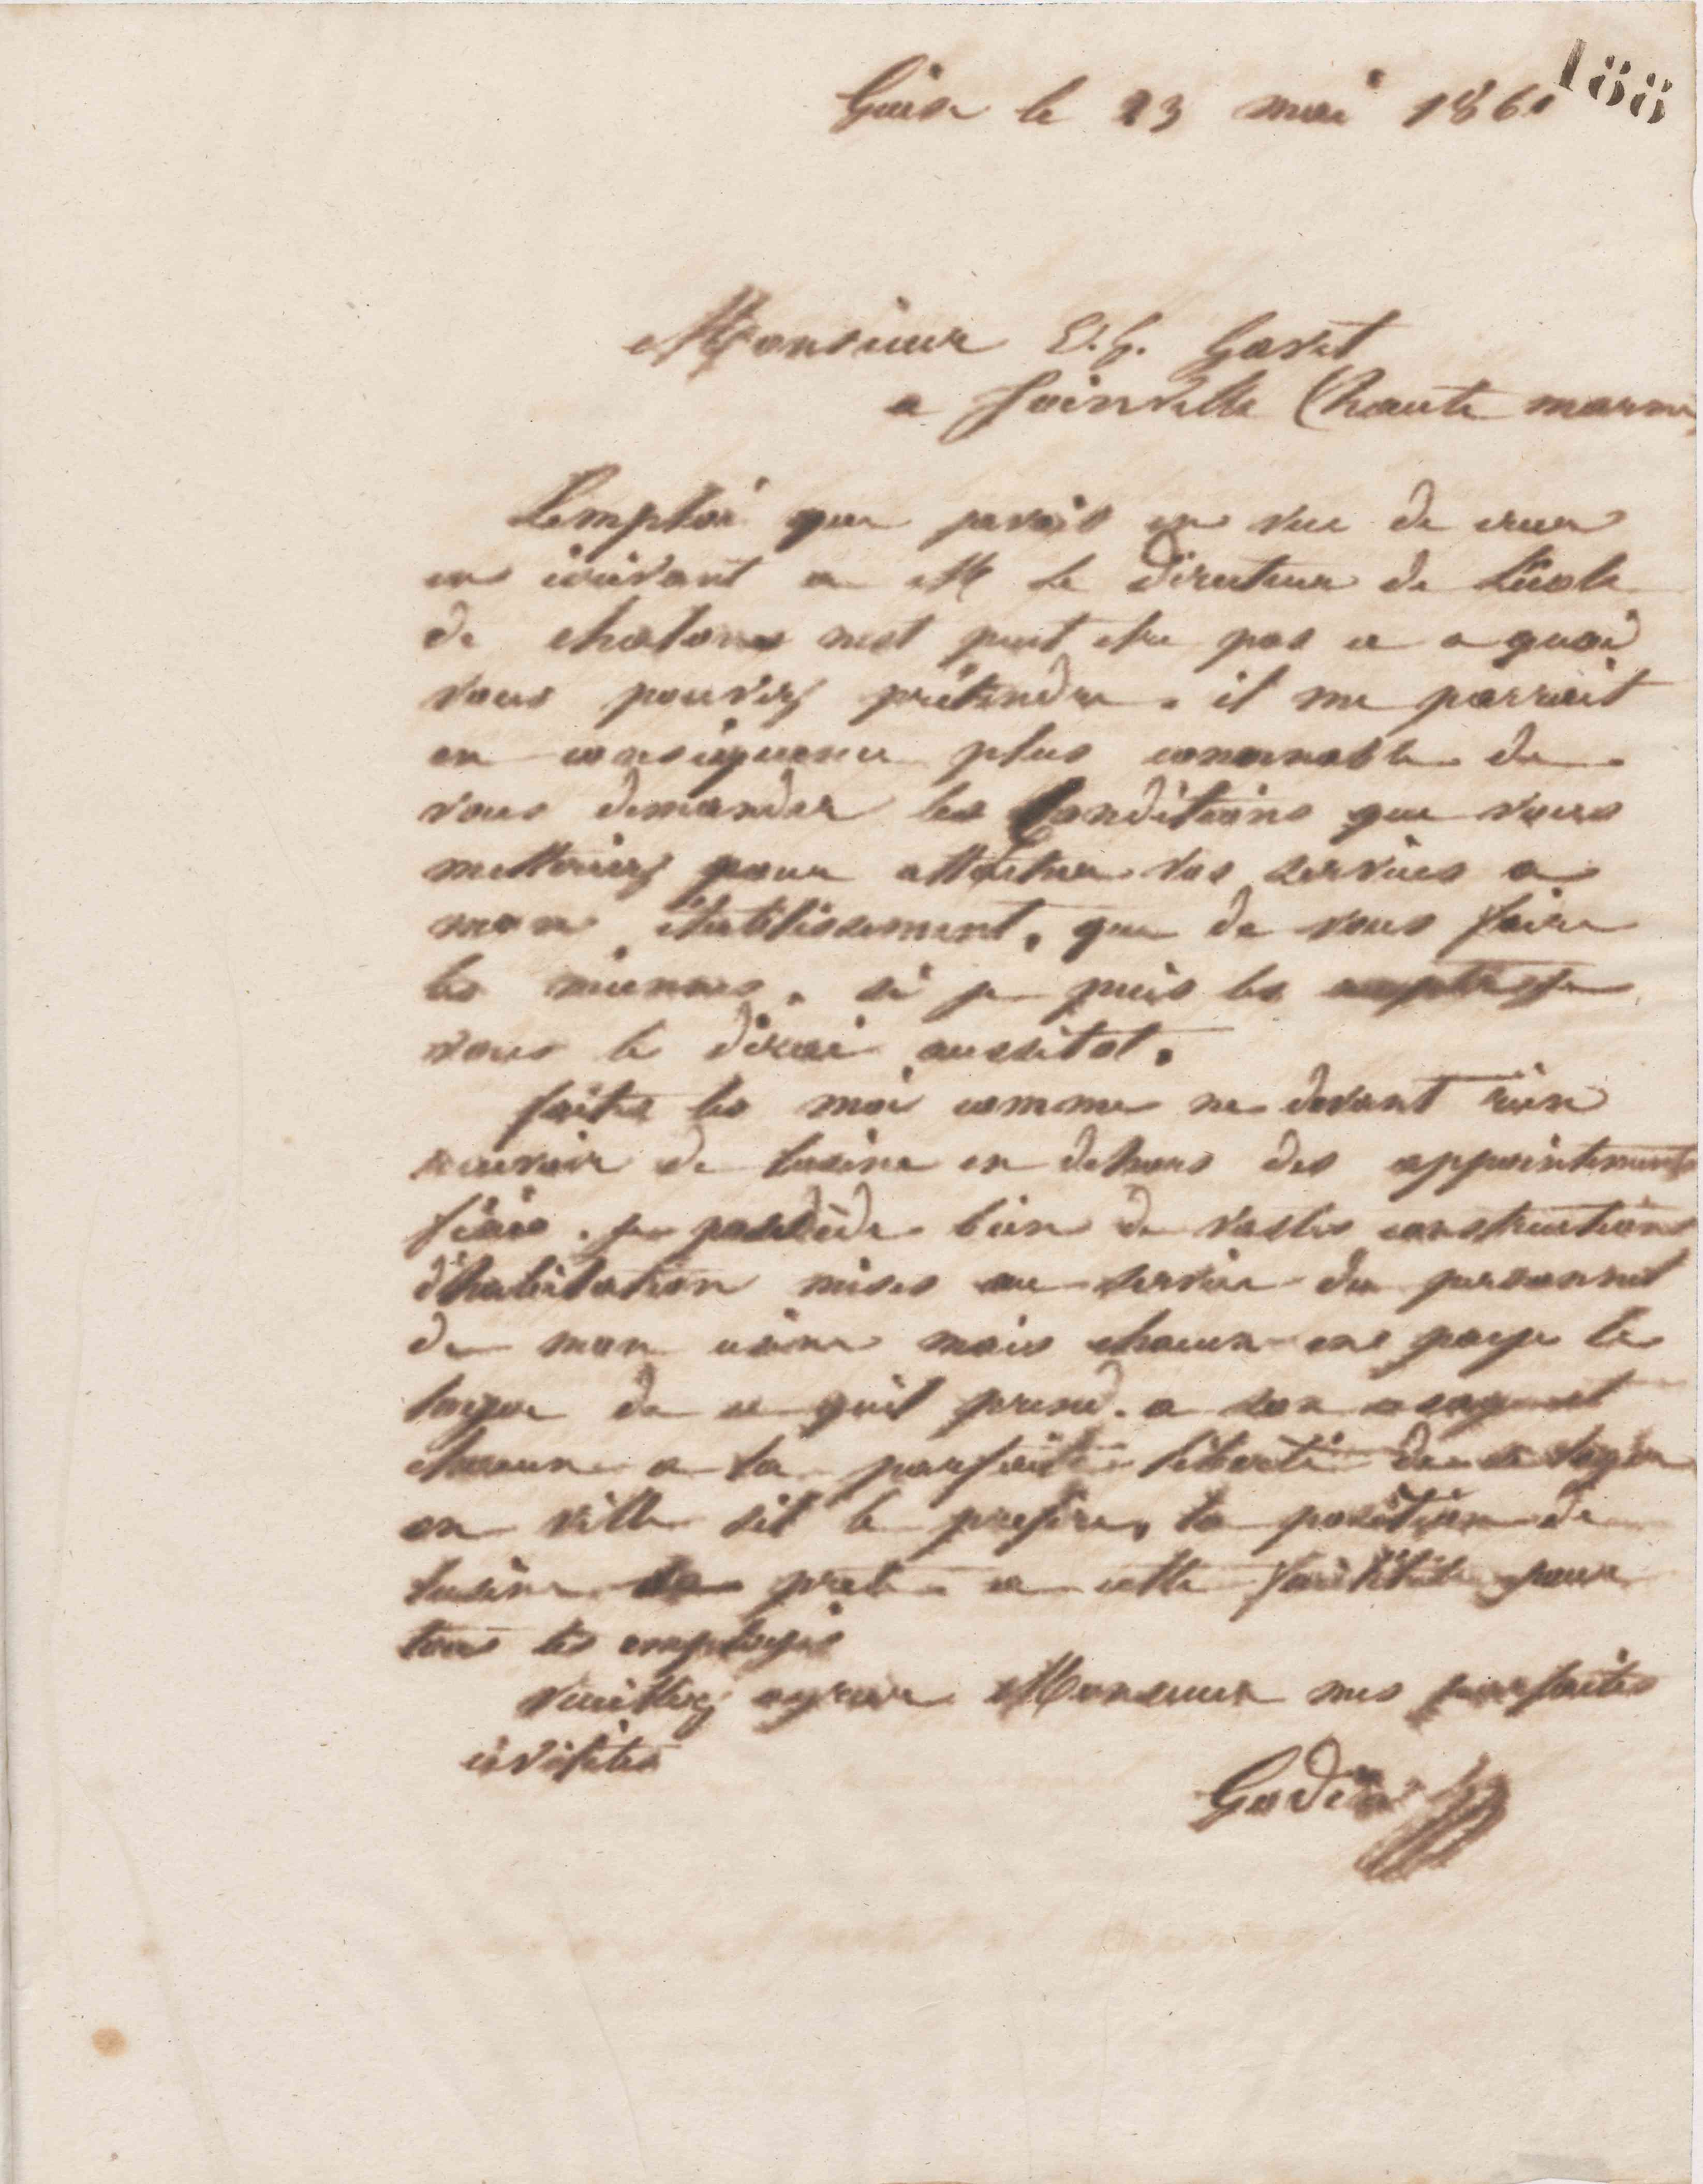 188
Guise le 23 mai 186
Monsieur E. G. Gosset
a Joinville (haute marne
Lemploi que javais en vue de creer
en ecrivant a M le directeur de Lecole
de chalons nest peut etre pas ce a quoi
vous pouvez prétendre. il me parrait
en consequence plus convenable de
vous demander les Conditions que vous
metteriez pour attacher vos services a
mon établissement, que de vous faire
les miennes. si je puis les accepter je
vous le dirai aussitot.
faites les moi comme ne devant rien
recevoir de lusine en dehors des appointements
fixes. je possède bien de vastes constructions
dhabitation mises au service du personnel
de mon usine mais chacun en paye le
loyer de ce quil prend a son usage et
chacun a la parfaite liberté de se loger
en ville sil le prefere, la position de
lusine se prete a cette facilité pour
tous les employés
veuillez agreer Monsieur mes parfaites
civilités
Godin